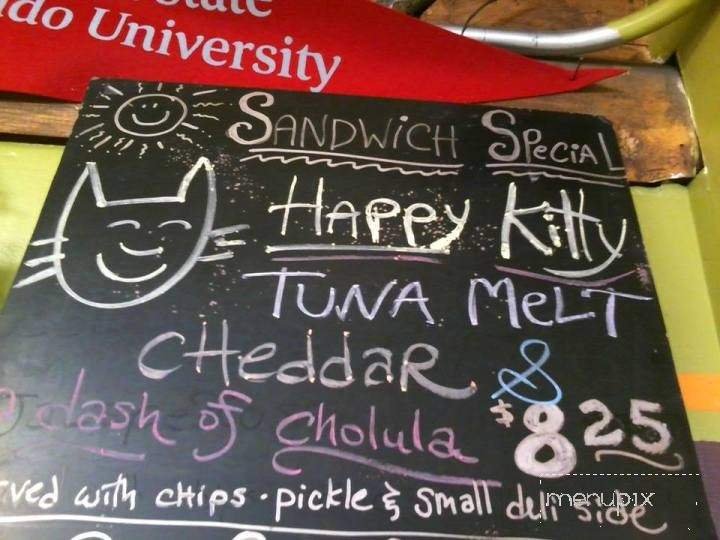 State
do University
SANDWiCH SPeCiAL
HAPPy Kitty
TUNA MeLT
CHeddAR &
a dash of Cholula $8 25
rved with CHiPs · pickle & small deli side
menupix